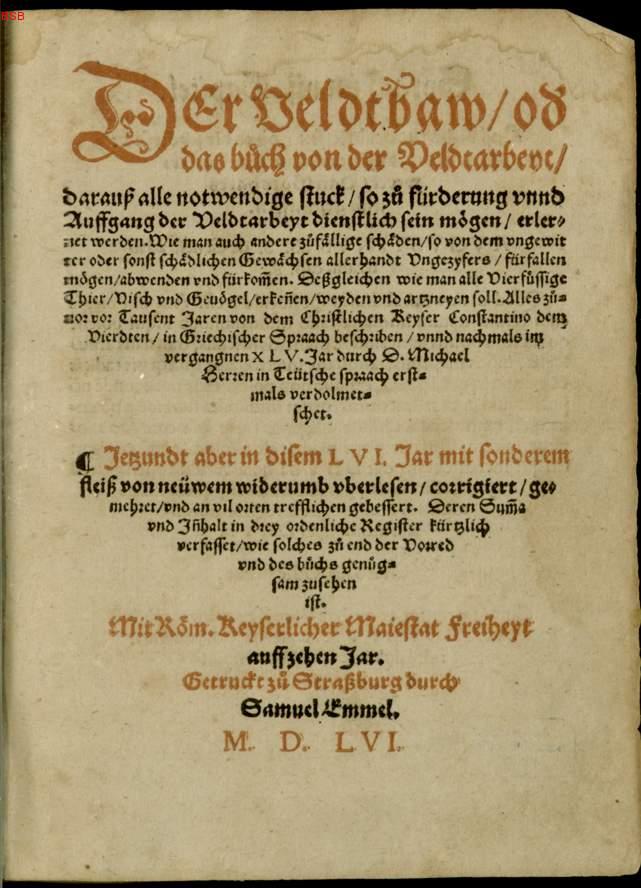 BSB
DEr Veldtbaw/ od
das bůch von der Veldtarbeyt/
darauß alle notwendige stuck/ so zů fürderung vnnd
Auffgang der Veldtarbeyt dienstlich sein mögen/ erler-
net werden. Wie man auch andere zůfällige schäden/ so von dem vngewit
ter oder sonst schädlichen Gewächsen allerhandt Vngezyfers/ fürfallen
mögen/ abwenden vnd fürkom̄en. Deßgleichen wie man alle Vierfüssige
Thier/ Visch vnd Geuögel/ erken̄en/ weyden vnd artzneyen soll. Alles zů-
uor vor Tausent Jaren von dem Christlichen Keyser Constantino dem
Vierdten/ in Griechischer Spraach beschriben/ vnnd nachmals im
vergangnen XLV. Jar durch D. Michael
Herren in Teütsche spraach erst-
mals verdolmet-
schet.
¶ Jetzundt aber in disem LVI. Jar mit sonderem
fleiß von neüwem widerumb vberlesen/ corrigiert/ ge-
mehret/ vnd an vil orten trefflichen gebessert. Deren Sum̄a
vnd Jn̄halt in drey ordenliche Register kürtzlich
verfasset/ wie solches zů end der Vorred
vnd des bůchs genůg-
sam zusehen
ist.
Mit Röm. Keyserlicher Maiestat Freiheyt
auff zehen Jar.
Getruckt zů Straßburg durch
Samuel Emmel.
M. D. LVI.